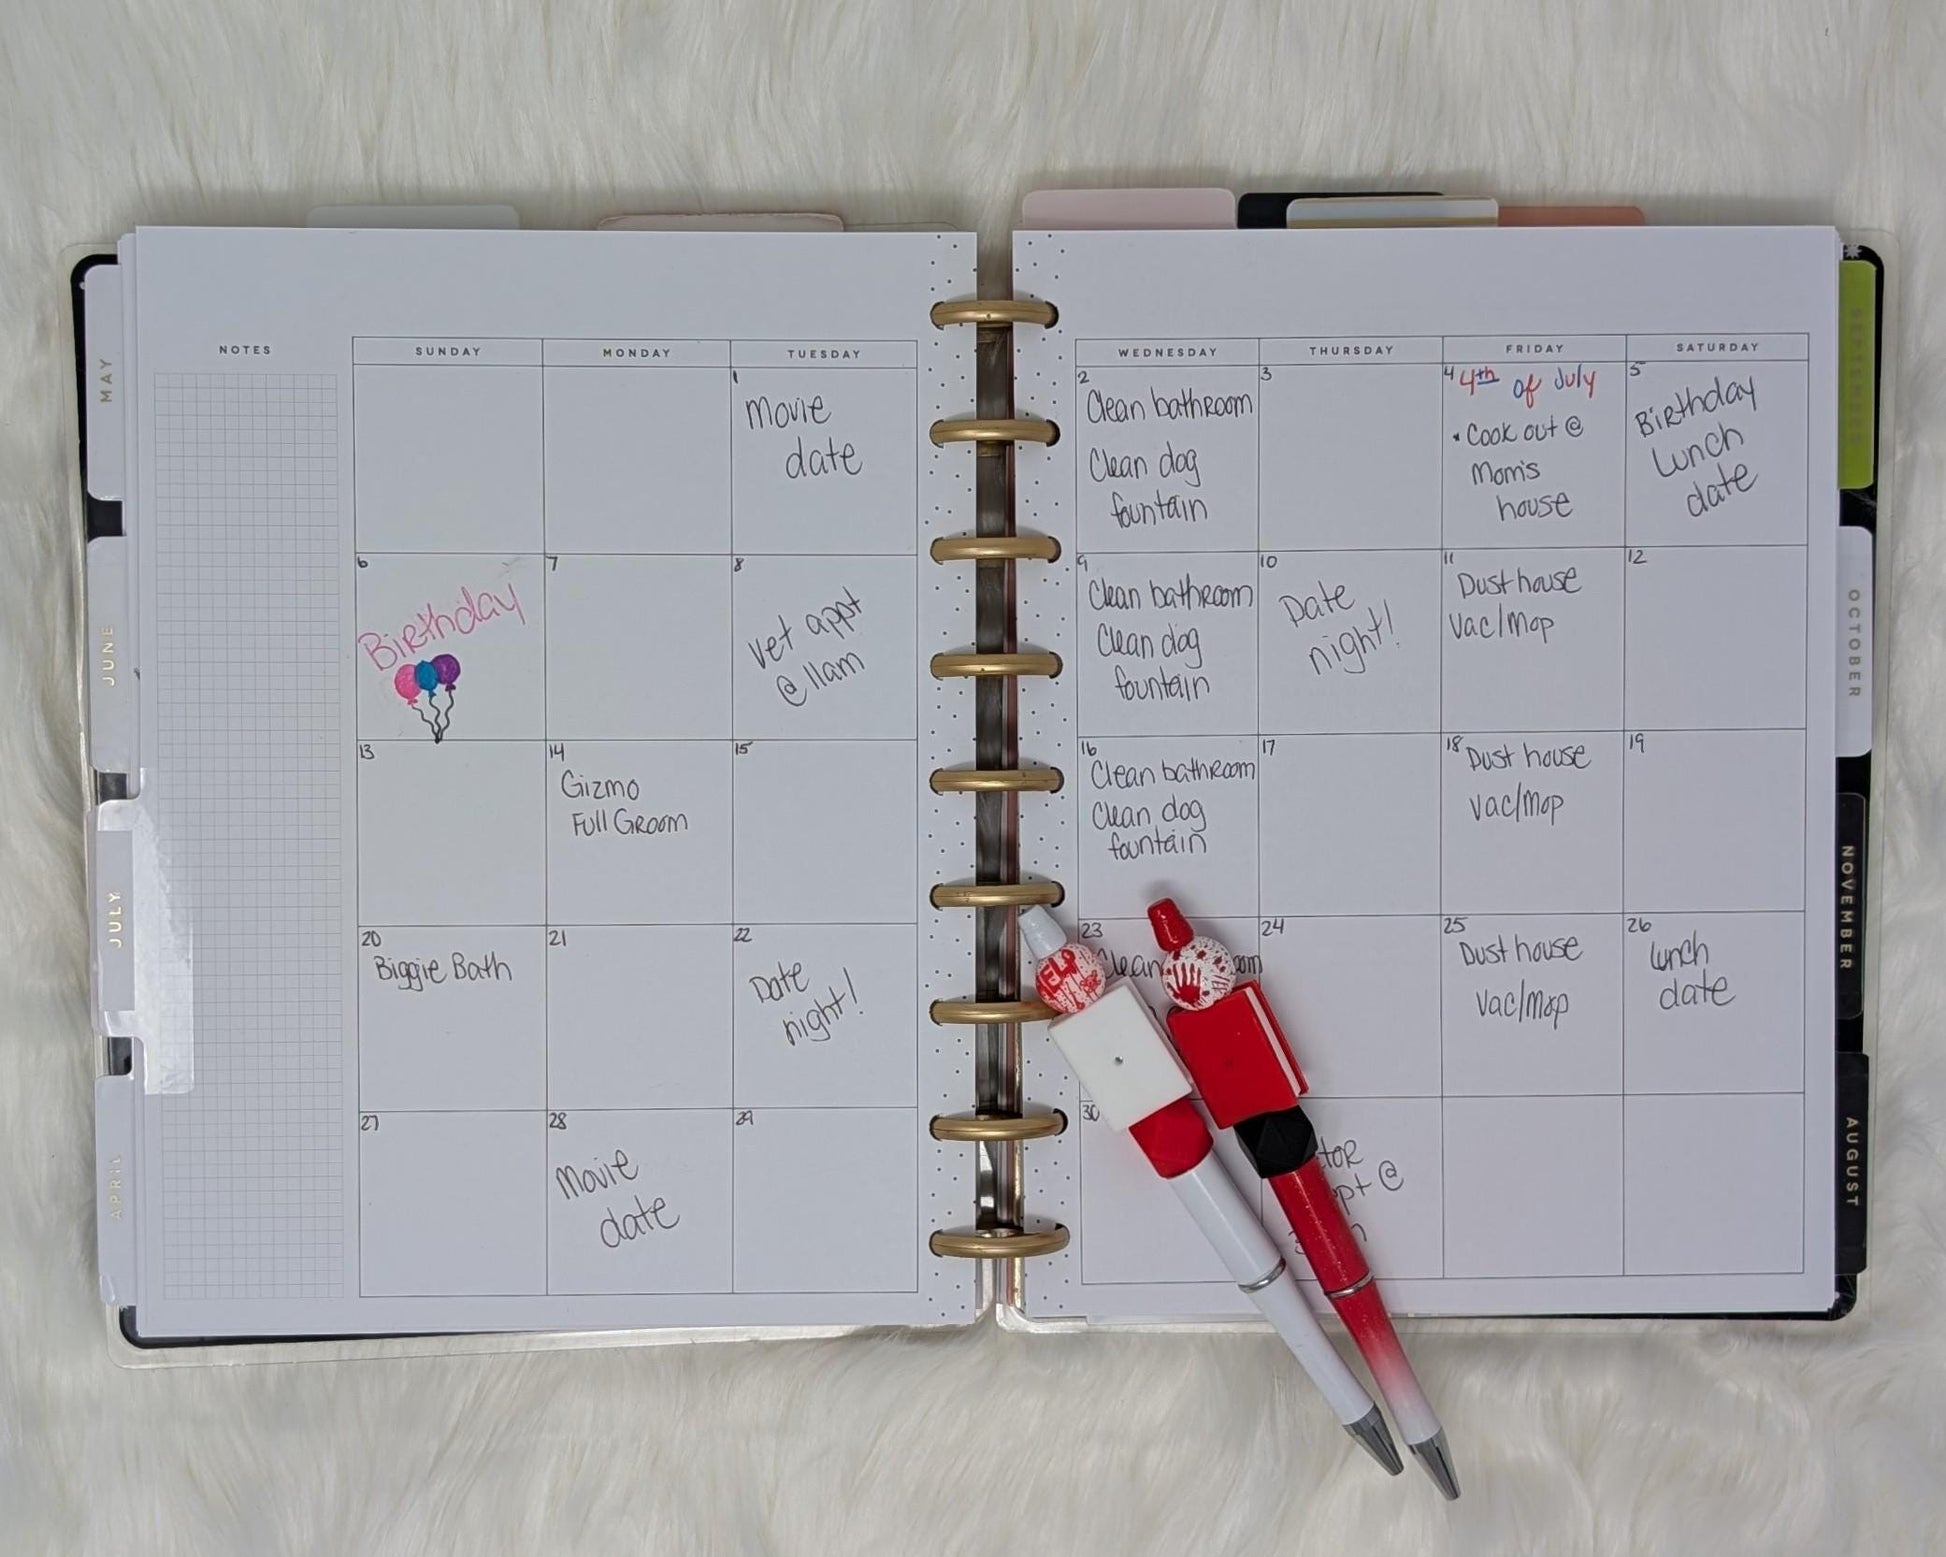 NOTES
SUNDAY
MONDAY
TUESDAY
1
Movie
date
6
Birthday
7
8
Vet appt
@ 11am
13
14
Gizmo
Full Groom
15
20
Biggie Bath
21
22
Date
night!
27
28
Movie
date
29
WEDNESDAY
THURSDAY
FRIDAY
SATURDAY
2
Clean bathroom
Clean dog
fountain
3
4
4th of July
• Cook out @
Mom's
house
5
Birthday
Lunch
date
9
Clean bathroom
Clean dog
fountain
10
Date
night!
11
Dust house
Vac/Mop
12
16
Clean bathroom
Clean dog
fountain
17
18
Dust house
Vac/Mop
19
23
Clean
24
25
Dust house
Vac/Mop
26
Lunch
date
30
@
MAY
JUNE
JULY
APRIL
SEPTEMBER
OCTOBER
NOVEMBER
AUGUST